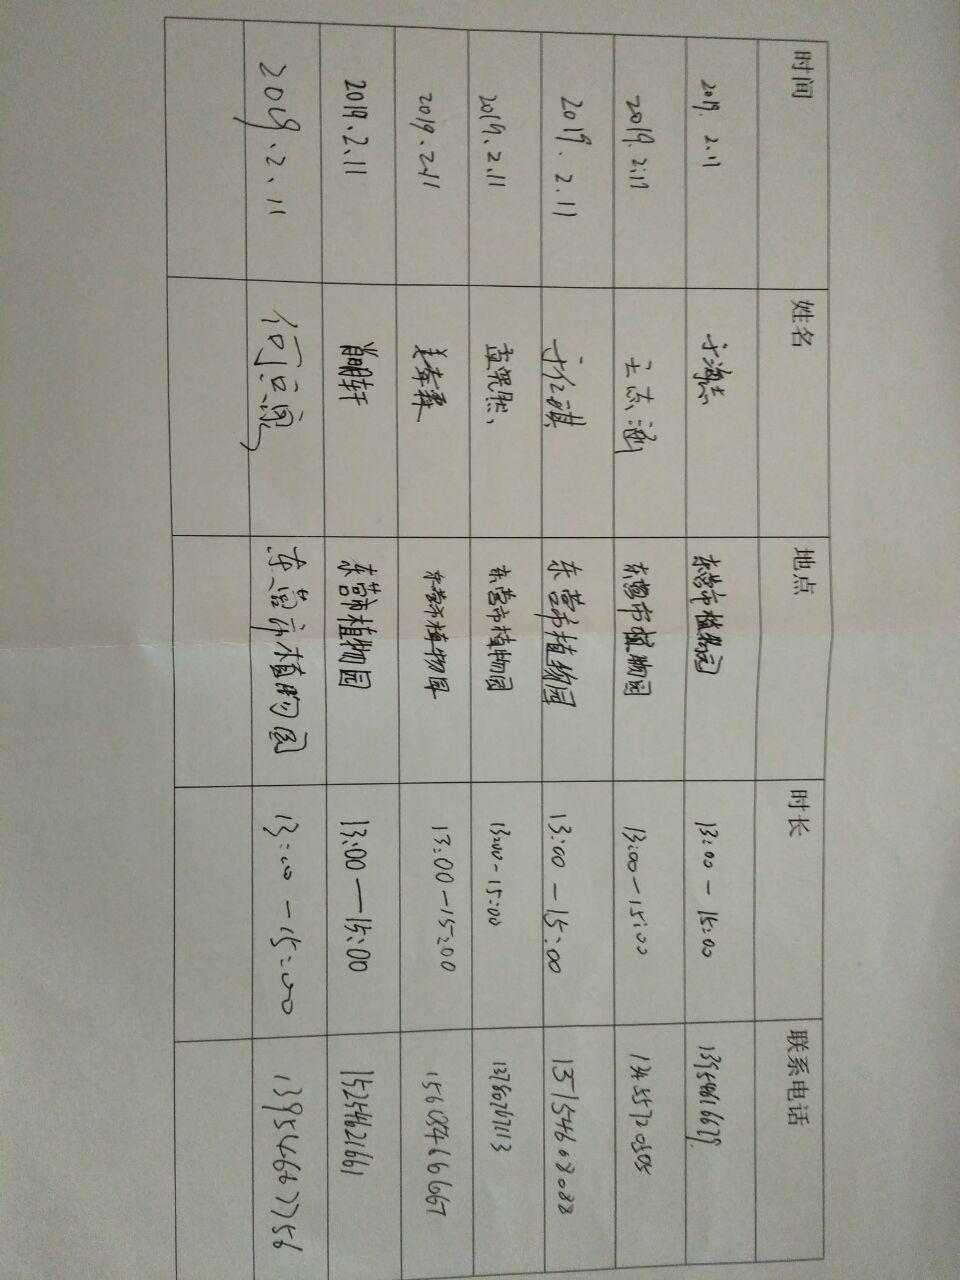 时间 姓名 地点 时长 联系电话
2019. 2.11 于海志 东营市植物园 13:00 - 15:00
2019. 2.11 王志涵 东营市植物园 13:00 - 15:00
2019. 2.11 于亿祺 东营市植物园 13:00 - 15:00 13715460
2019.2.11 东营市植物园 13:00 - 15:00 13780767113
2019.2.11 东营市植物园 13:00 - 15:00 15608466667
2019.2.11 肖明轩 东营市植物园 13:00 — 15:00 15254621661
2019.2.11 东营市植物园 13:00 - 15:00 13954687756